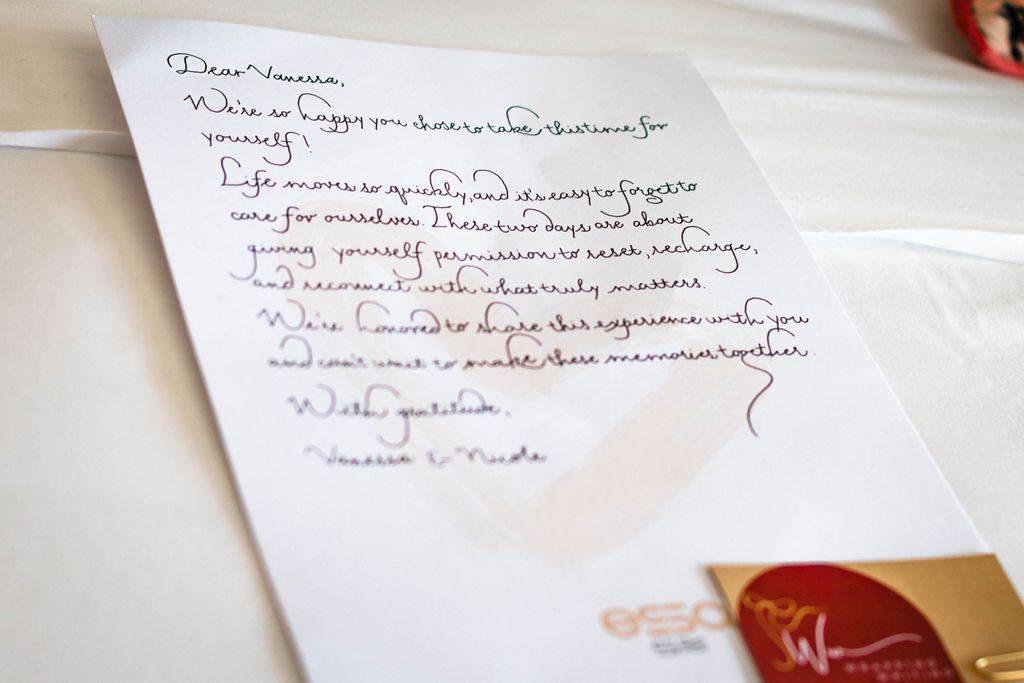 Dear Vanessa,
We're so happy you chose to take this time for
yourself!
Life moves so quickly, and it's easy to forget to
care for ourselves. These two days are about
giving yourself permission to reset, recharge,
and reconnect with what truly matters.
We're honored to share this experience with you
and can't wait to make these memories together.
With gratitude,
Vanessa & Nicole
esso